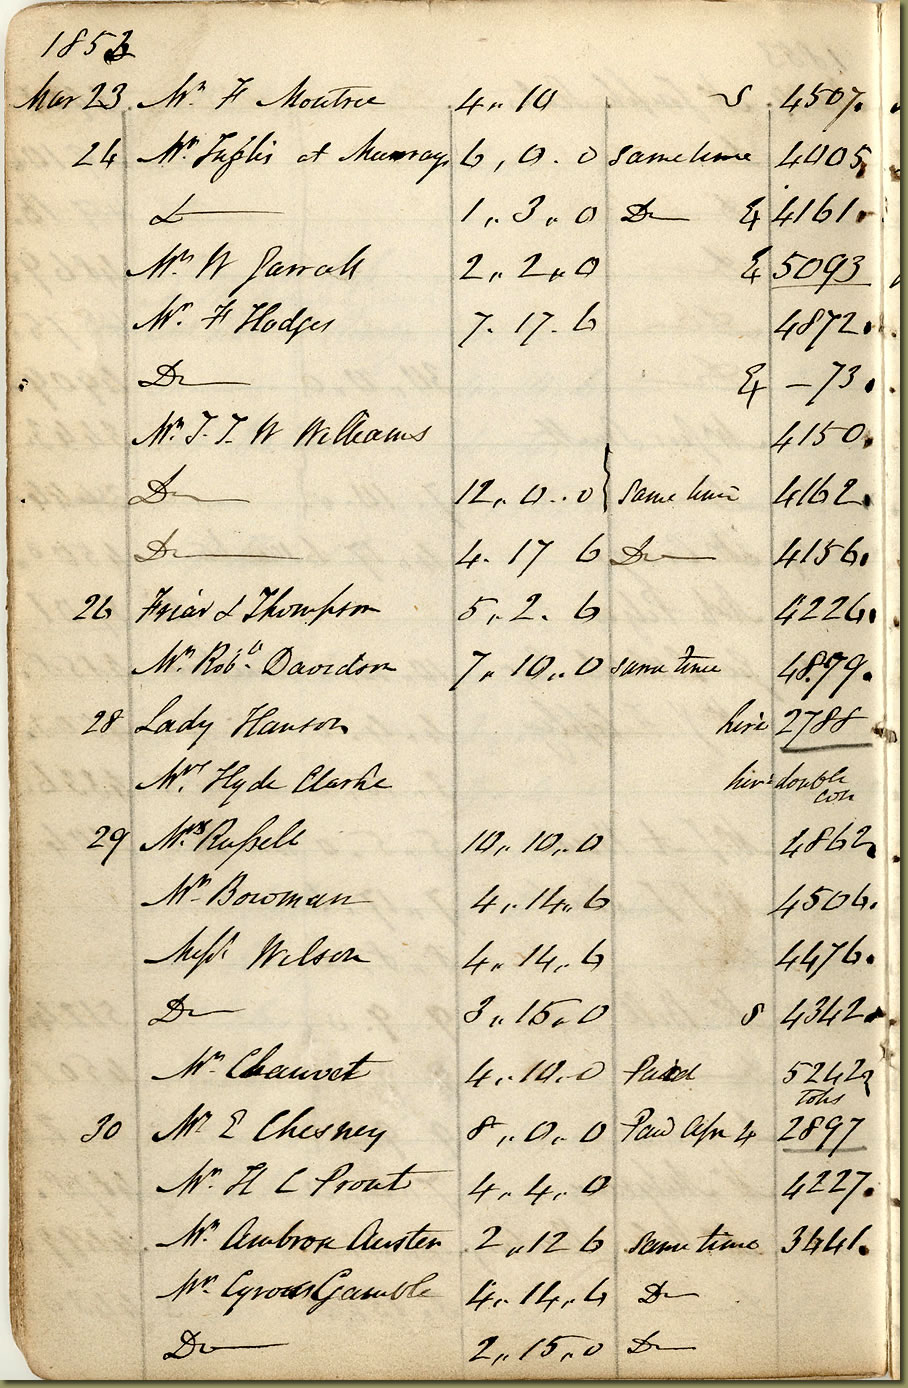 1853
Mar 23 Mr. F Moutrie 4,, 10 S 4507.
24 Mr. Inglis at Murrays 6, 0. 0 same time 4005
Do 1,, 3,, 0 Do & 4161.
Mr. W Jarrall 2,, 2,, 0 & 5093
Mr. F Hodges 7. 17. 6 4872.
Do & — 73.
Mr. T. T. W Williams 4150.
Do 12,, 0,, 0 } same time 4162.
Do 4. 17 6 Do 4156.
26 Friar & Thompson 5,, 2. 6 4226.
Mr. Robt. Davidson 7,, 10,, 0 same time 4879.
28 Lady Hanson hire 2788
Mr. Hyde Clarke hire double con
29 Mrs Russell 10,, 10,, 0 4862
Mr. Bowman 4,, 14,, 6 4506.
Miss Wilson 4,, 14,, 6 4476.
Do 3,, 15,, 0 S 4342.
Mr. Chauvet 4,, 10,, 0 Paid 5242
30 Mr E Chesney 8,, 0,, 0 Paid Apr 4 2897
Mr. H C Prout 4,, 4,, 0 4227.
Mr. Ambrose Austen 2,, 12 6 same time 3441.
Mr. Cyrous Gamble 4,, 14,, 6 Do
Do 2,, 15,, 0 Do